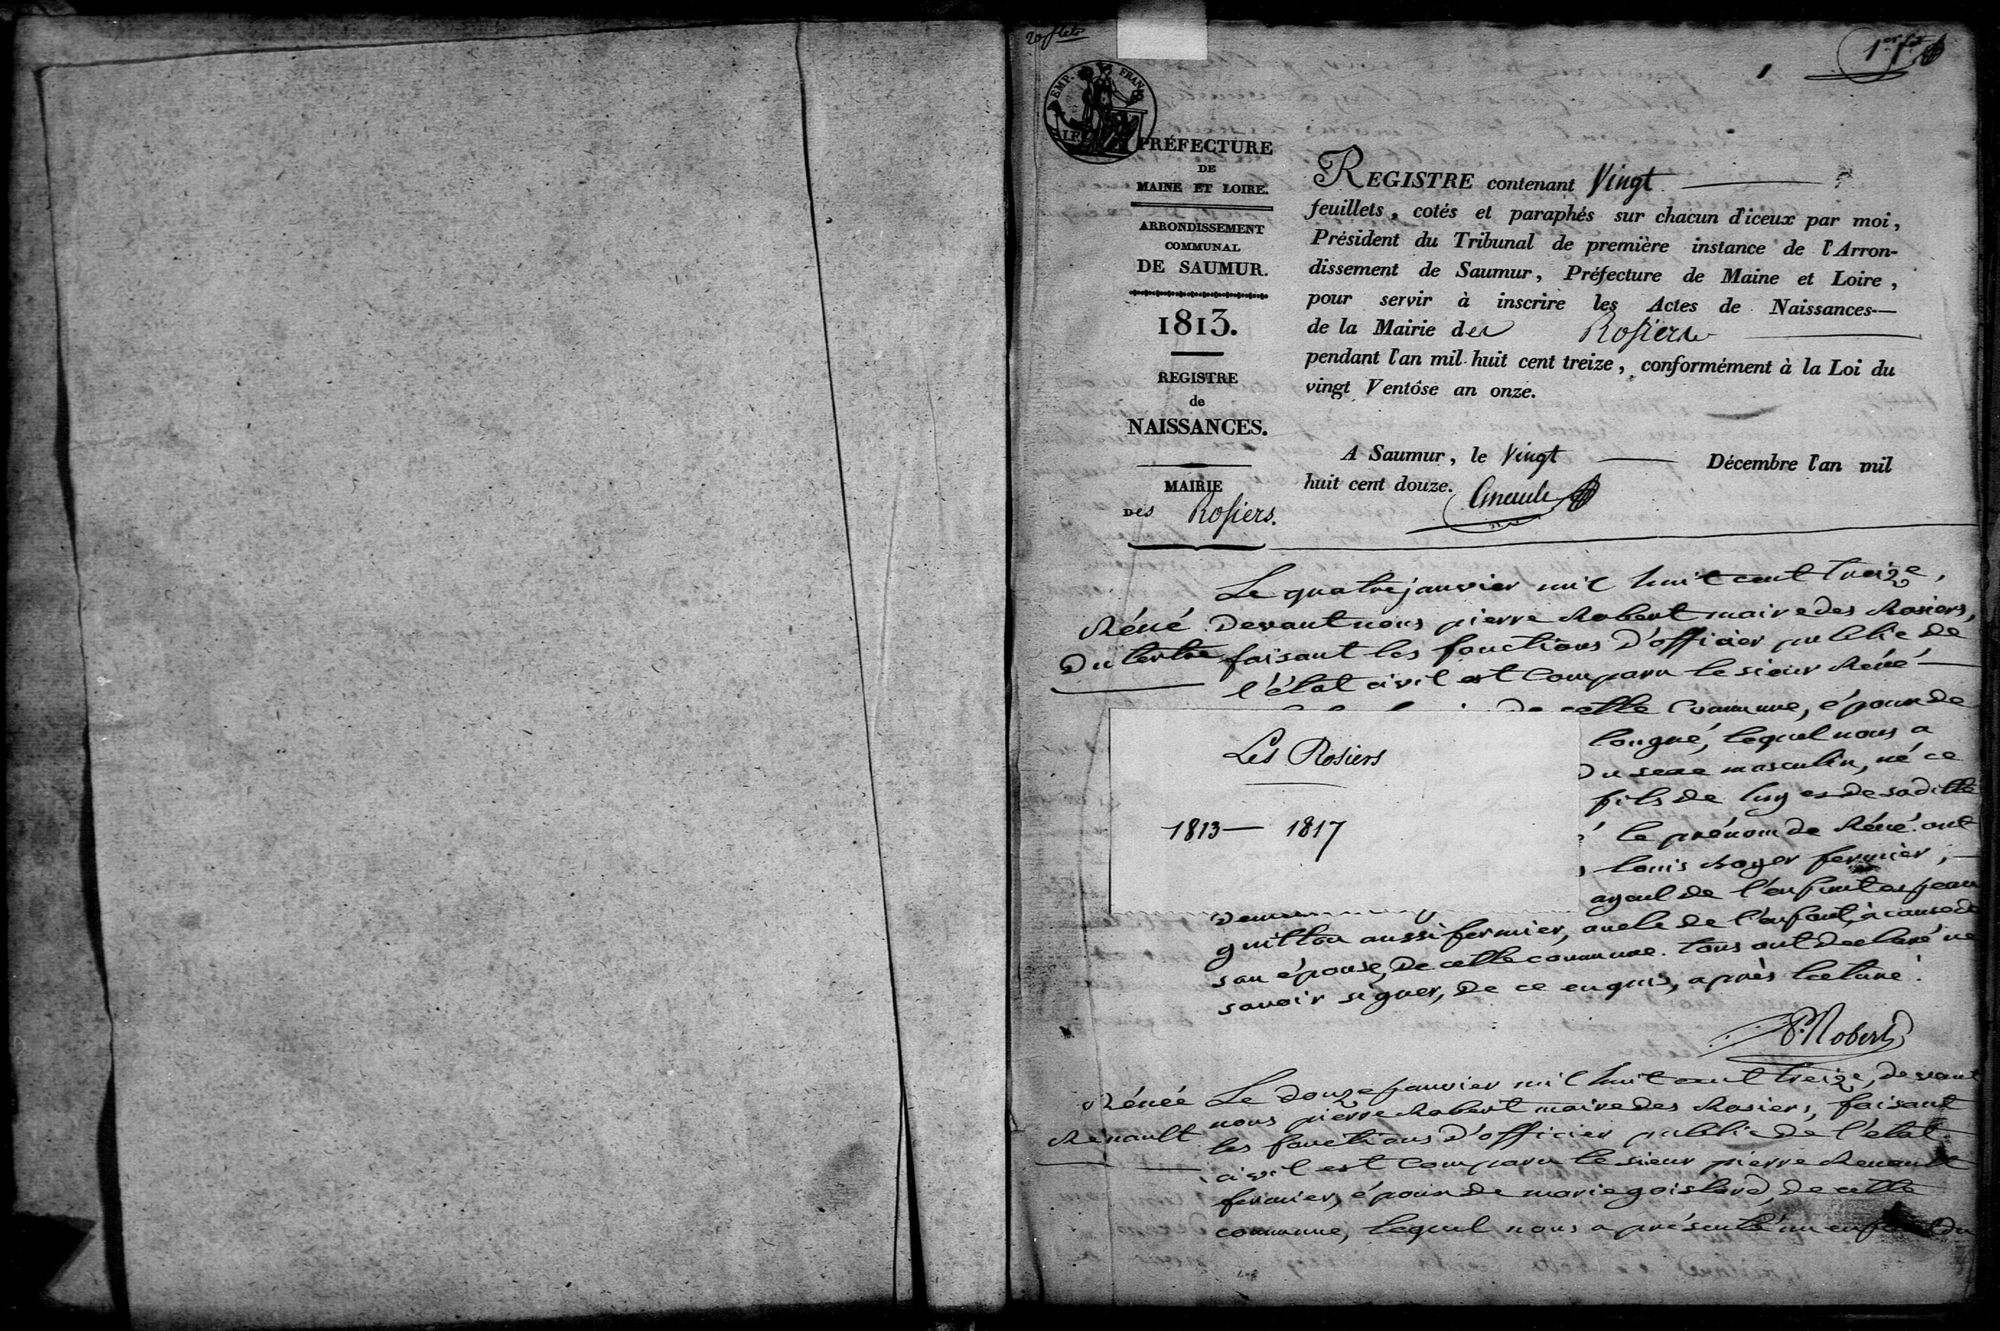 20 flets
1er ft
1
EMP. FRANÇ.
PRÉFECTURE
DE
MAINE ET LOIRE.
ARRONDISSEMENT
COMMUNAL
DE SAUMUR.
1813.
REGISTRE
de
NAISSANCES.
MAIRIE
DES Rosiers.
REGISTRE contenant Vingt
feuillets, cotés et paraphés sur chacun d'iceux par moi,
Président du Tribunal de première instance de l'Arron-
dissement de Saumur, Préfecture de Maine et Loire,
pour servir à inscrire les Actes de Naissances
de la Mairie des Rosiers
pendant l'an mil huit cent treize, conformément à la Loi du
vingt Ventôse an onze.
A Saumur, le Vingt Décembre l'an mil
huit cent douze.
Réné
Dutertre
Le quatre janvier mil huit cent treize,
Devant nous pierre Robert maire des Rosiers,
faisant les fonctions d'officier public de
l'état civil est comparu le sieur Réné
de cette commune, époux de
longué, lequel nous a
Du sexe masculin, né ce
fils de luy et de sa ditte
le prénom de Réné. ont
louis Roger fermier,
ayeul de l'enfant et jean
guitton aussi fermier, oncle de l'enfant, à cause de
son épouse, de cette commune. tous ont déclaré ne
savoir signer, de ce enquis, après lecture.
P. Robert
Les Rosiers
1813 — 1817
Rénée
Renault
Le douze janvier mil huit cent treize, devant
nous pierre Robert maire des Rosiers, faisant
les fonctions d'officier public de l'état
civil est comparu le sieur pierre Renault
fermier, époux de marie goislard, de cette
commune, lequel nous a présenté un enfant du